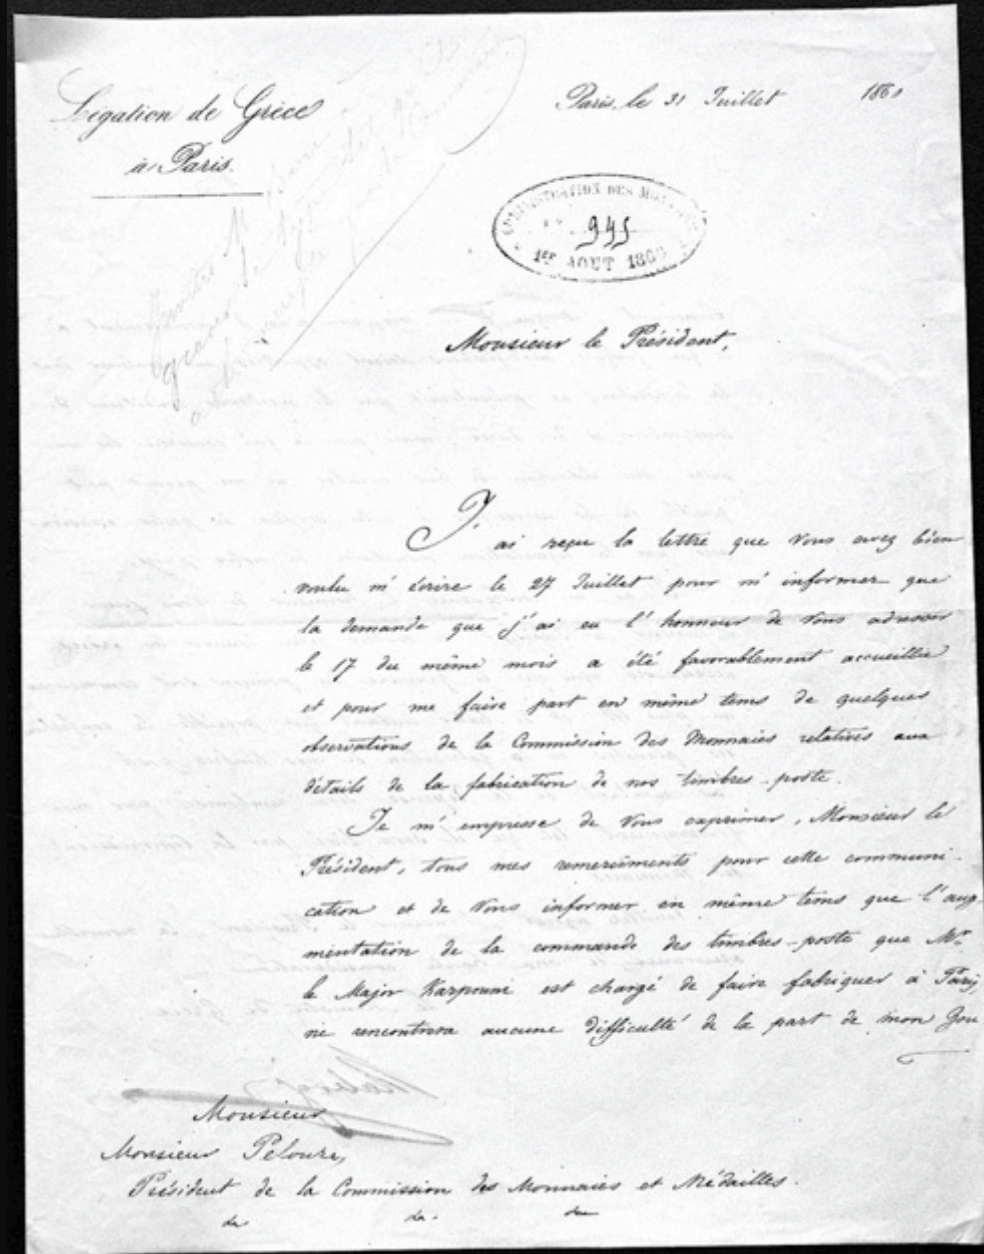 Légation de Grèce
à Paris.
Paris, le 31 Juillet 1860
ADMINISTRATION DES MONNAIES
945
1er AOUT 1860
Monsieur le Président,
J'ai reçu la lettre que Vous avez bien
voulu m'écrire le 27 Juillet pour m'informer que
la demande que j'ai eu l'honneur de Vous adresser
le 17 du même mois a été favorablement accueillie
et pour me faire part en même tems de quelques
observations de la Commission des Monnaies relatives aux
détails de la fabrication de nos timbres-poste.
Je m'empresse de Vous exprimer, Monsieur le
Président, tous mes remerciments pour cette communi-
cation et de Vous informer en même tems que l'aug-
mentation de la commande des timbres-poste que Mr.
le Major Karpouni est chargé de faire fabriquer à Paris,
ne rencontrera aucune difficulté de la part de mon Gou
Monsieur
Monsieur Pelouze,
Président de la Commission des Monnaies et Médailles.